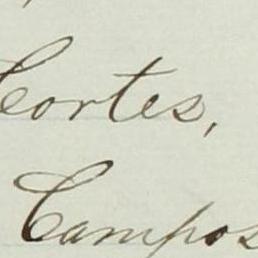 Cortes,
Campos